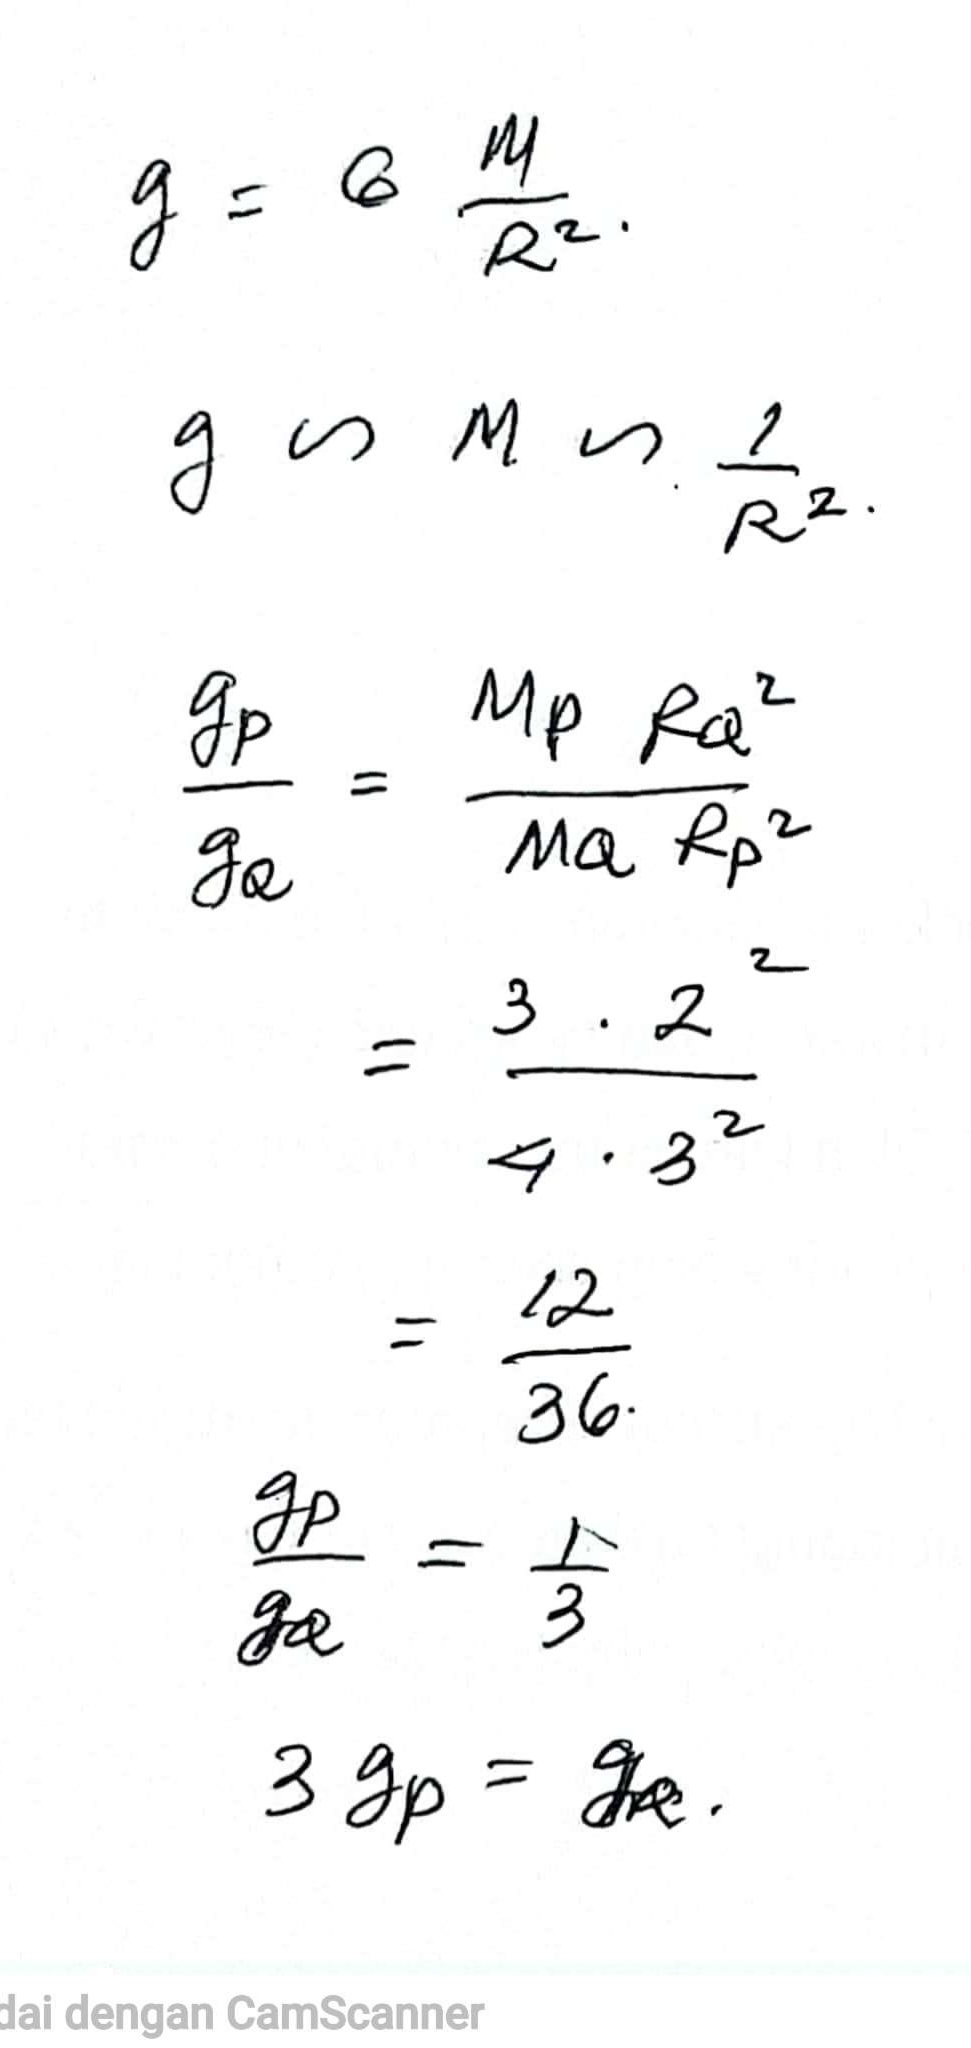 g = G M/R².
g ∽ M ∽ 1/R².
gp/gQ = Mp RQ²/MQ Rp²
= 3 . 2²/4 . 3²
= 12/36.
gp/gQ = 1/3
3 gp = gQ.
dai dengan CamScanner